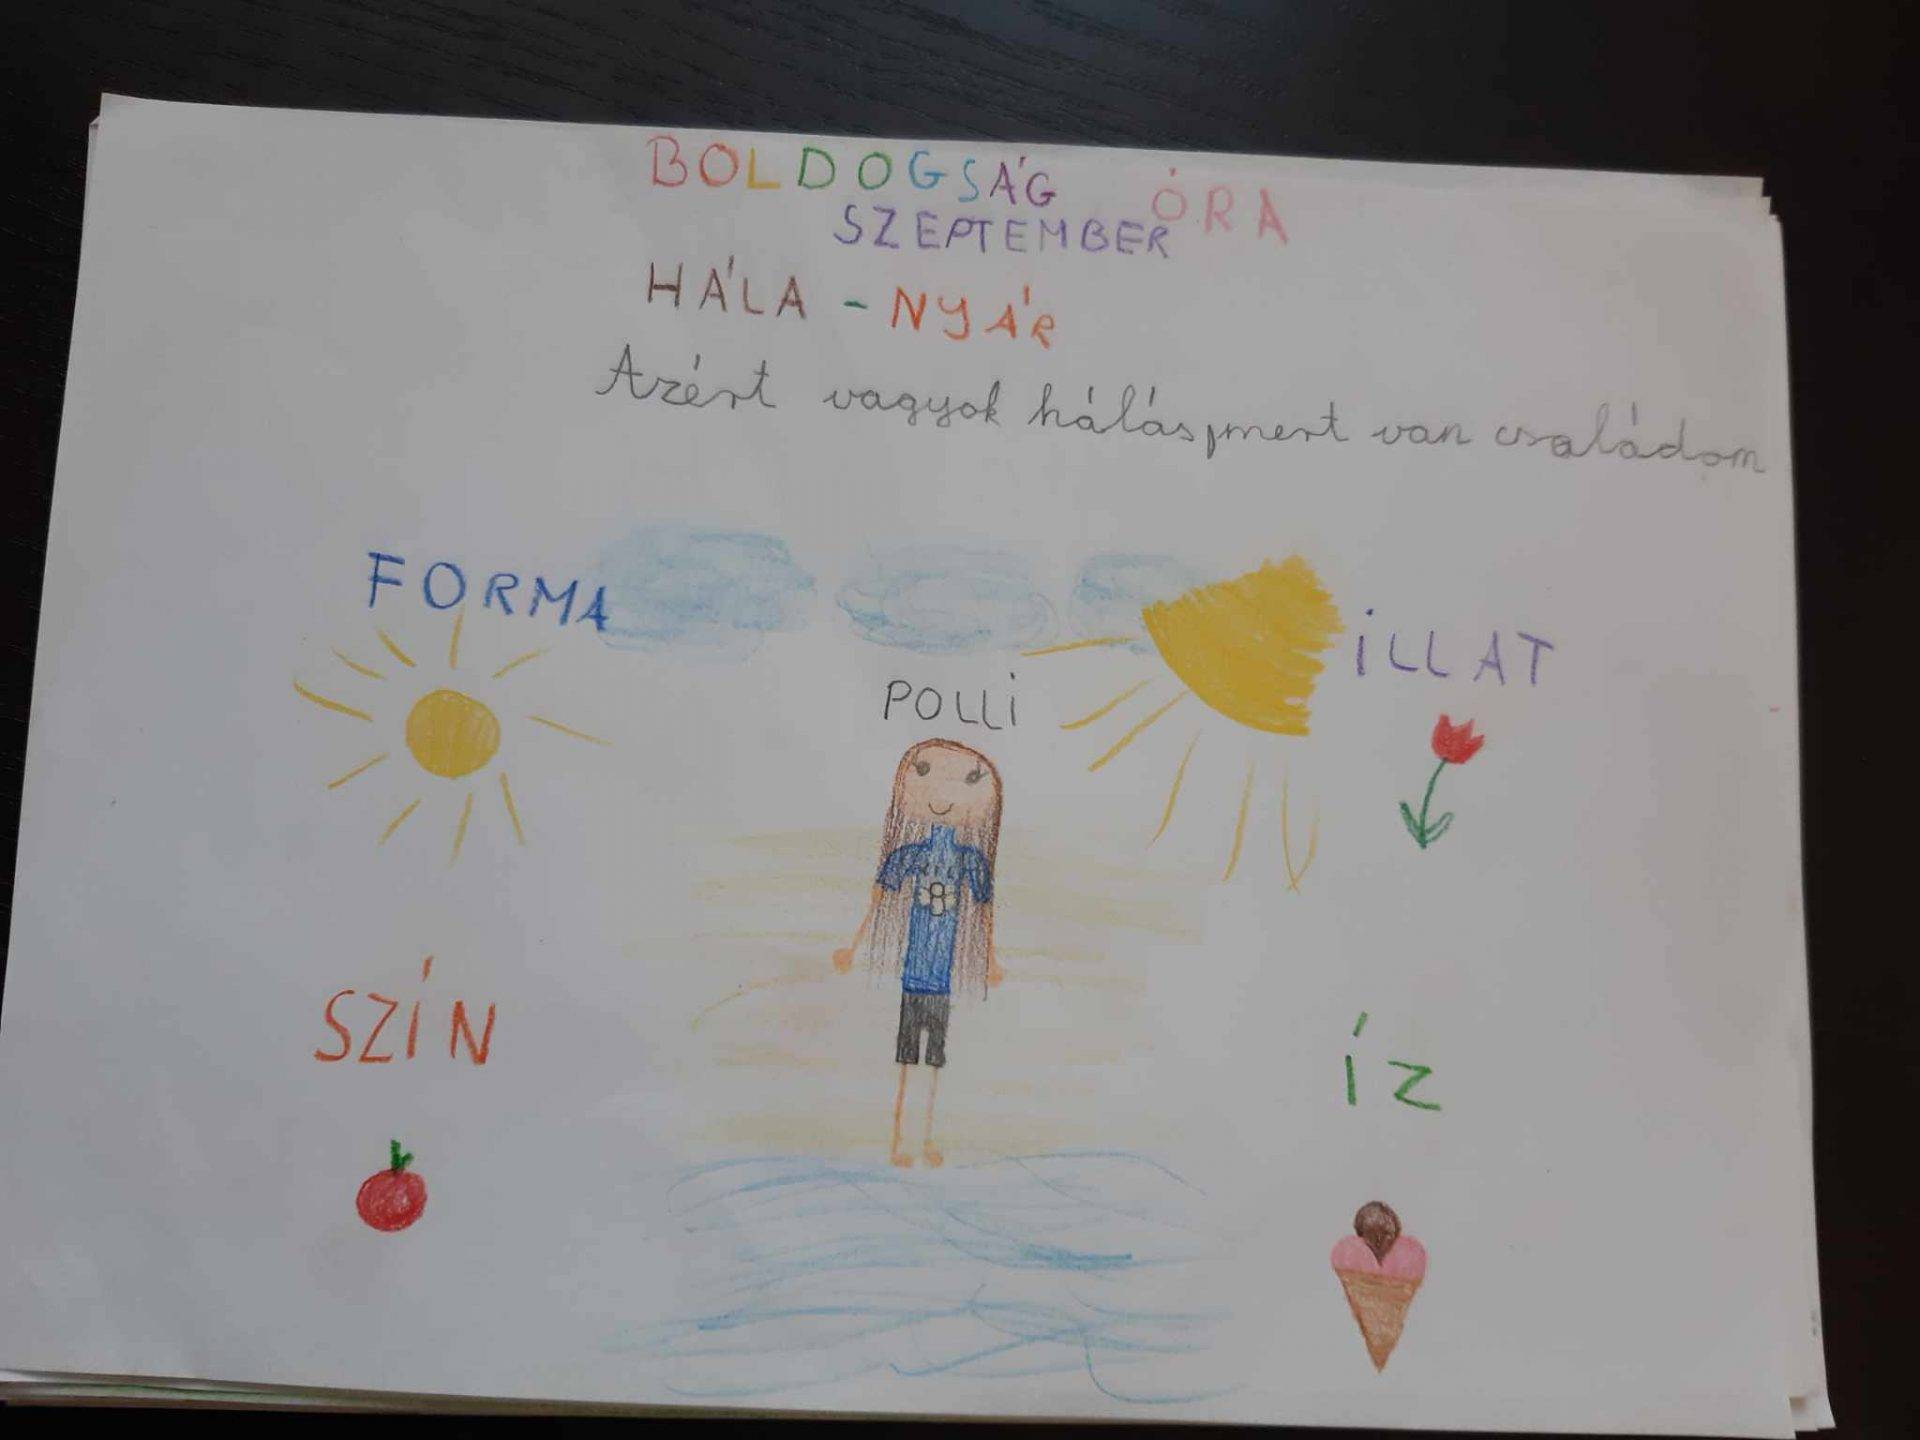 BOLDOGSÁG ÓRA
SZEPTEMBER
HÁLA - NYÁR
Azért vagyok hálás, mert van családom
FORMA
ILLAT
POLLI
SZÍN
ÍZ